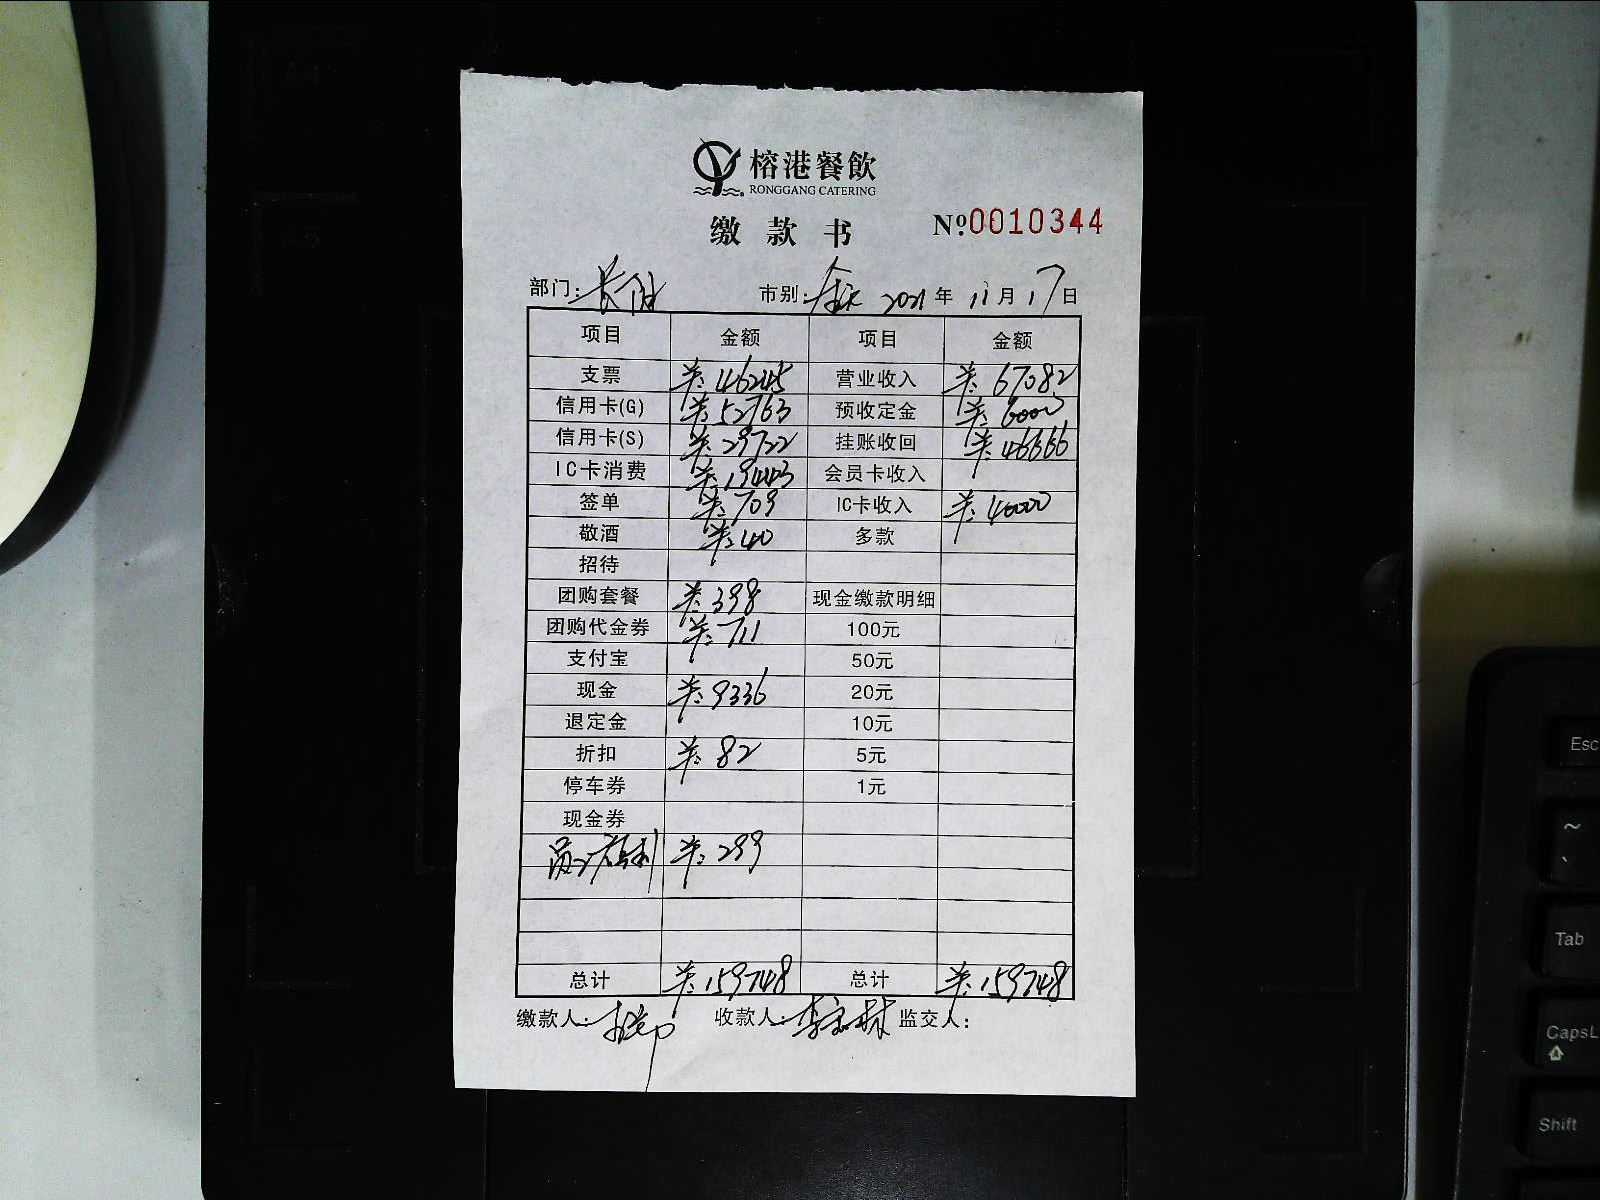 榕港餐飲
RONGGANG CATERING
缴款书 №0010344
部门: 市别: 全天 2021年 11月 17日
项目 金额 项目 金额
支票 ¥:46245 营业收入 ¥:67082
信用卡(G) ¥:52763 预收定金 ¥:6000
信用卡(S) ¥:29722 挂账收回 ¥:46666
IC卡消费 ¥:19443 会员卡收入
签单 ¥:709 IC卡收入 ¥:40000
敬酒 ¥:40 多款
招待
团购套餐 ¥:398 现金缴款明细
团购代金券 ¥:711 100元
支付宝 50元
现金 ¥:9336 20元
退定金 10元
折扣 ¥:82 5元
停车券 1元
现金券
员工福利 ¥:299
总计 ¥:159748 总计 ¥:159748
缴款人: 收款人: 监交人:
Esc
~
`
Tab
CapsL
Shift